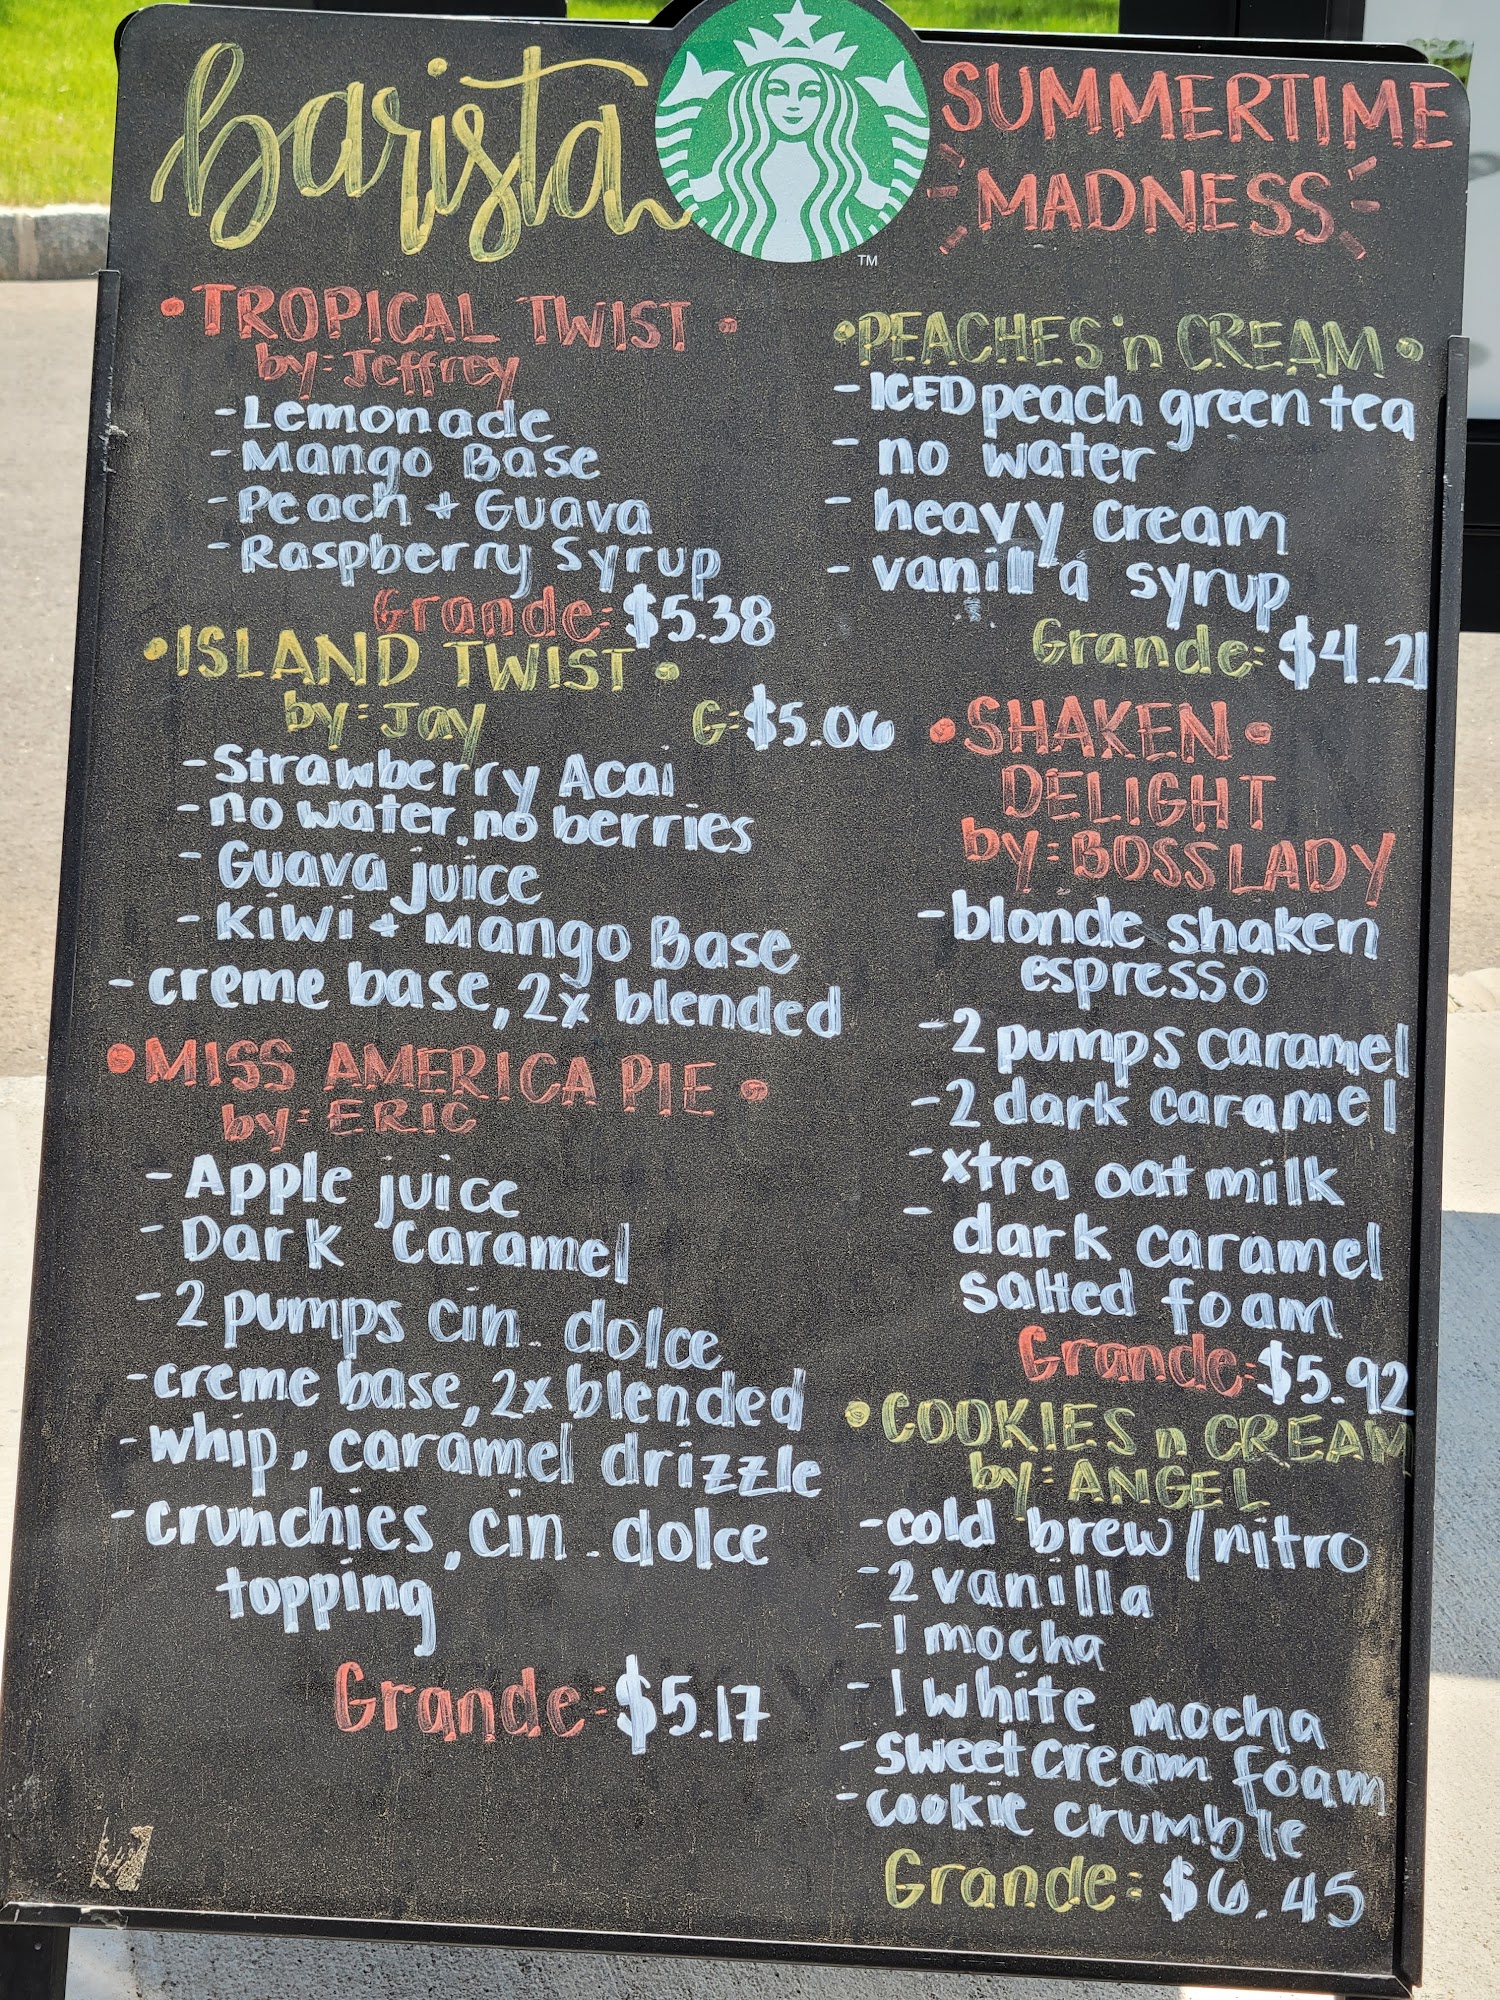 barista
SUMMERTIME
MADNESS
TM
• TROPICAL TWIST •
by: Jeffrey
- Lemonade
- Mango Base
- Peach + Guava
- Raspberry Syrup
Grande: $5.38
• ISLAND TWIST •
by: Jay G: $5.06
- Strawberry Acai
- no water, no berries
- Guava juice
- Kiwi + Mango Base
- creme base, 2x blended
• MISS AMERICA PIE •
by: ERIC
- Apple juice
- Dark Caramel
- 2 pumps cin. dolce
- creme base, 2x blended
- whip, caramel drizzle
- crunchies, cin. dolce
topping
Grande: $5.17
• PEACHES 'n CREAM •
- ICED peach green tea
- no water
- heavy cream
- vanilla syrup
Grande: $4.21
• SHAKEN •
DELIGHT
by: BOSSLADY
- blonde shaken
espresso
- 2 pumps caramel
- 2 dark caramel
- xtra oat milk
- dark caramel
salted foam
Grande: $5.92
• COOKIES n CREAM
by: ANGEL
- cold brew / nitro
- 2 vanilla
- 1 mocha
- 1 white mocha
- sweet cream foam
- cookie crumble
Grande: $6.45